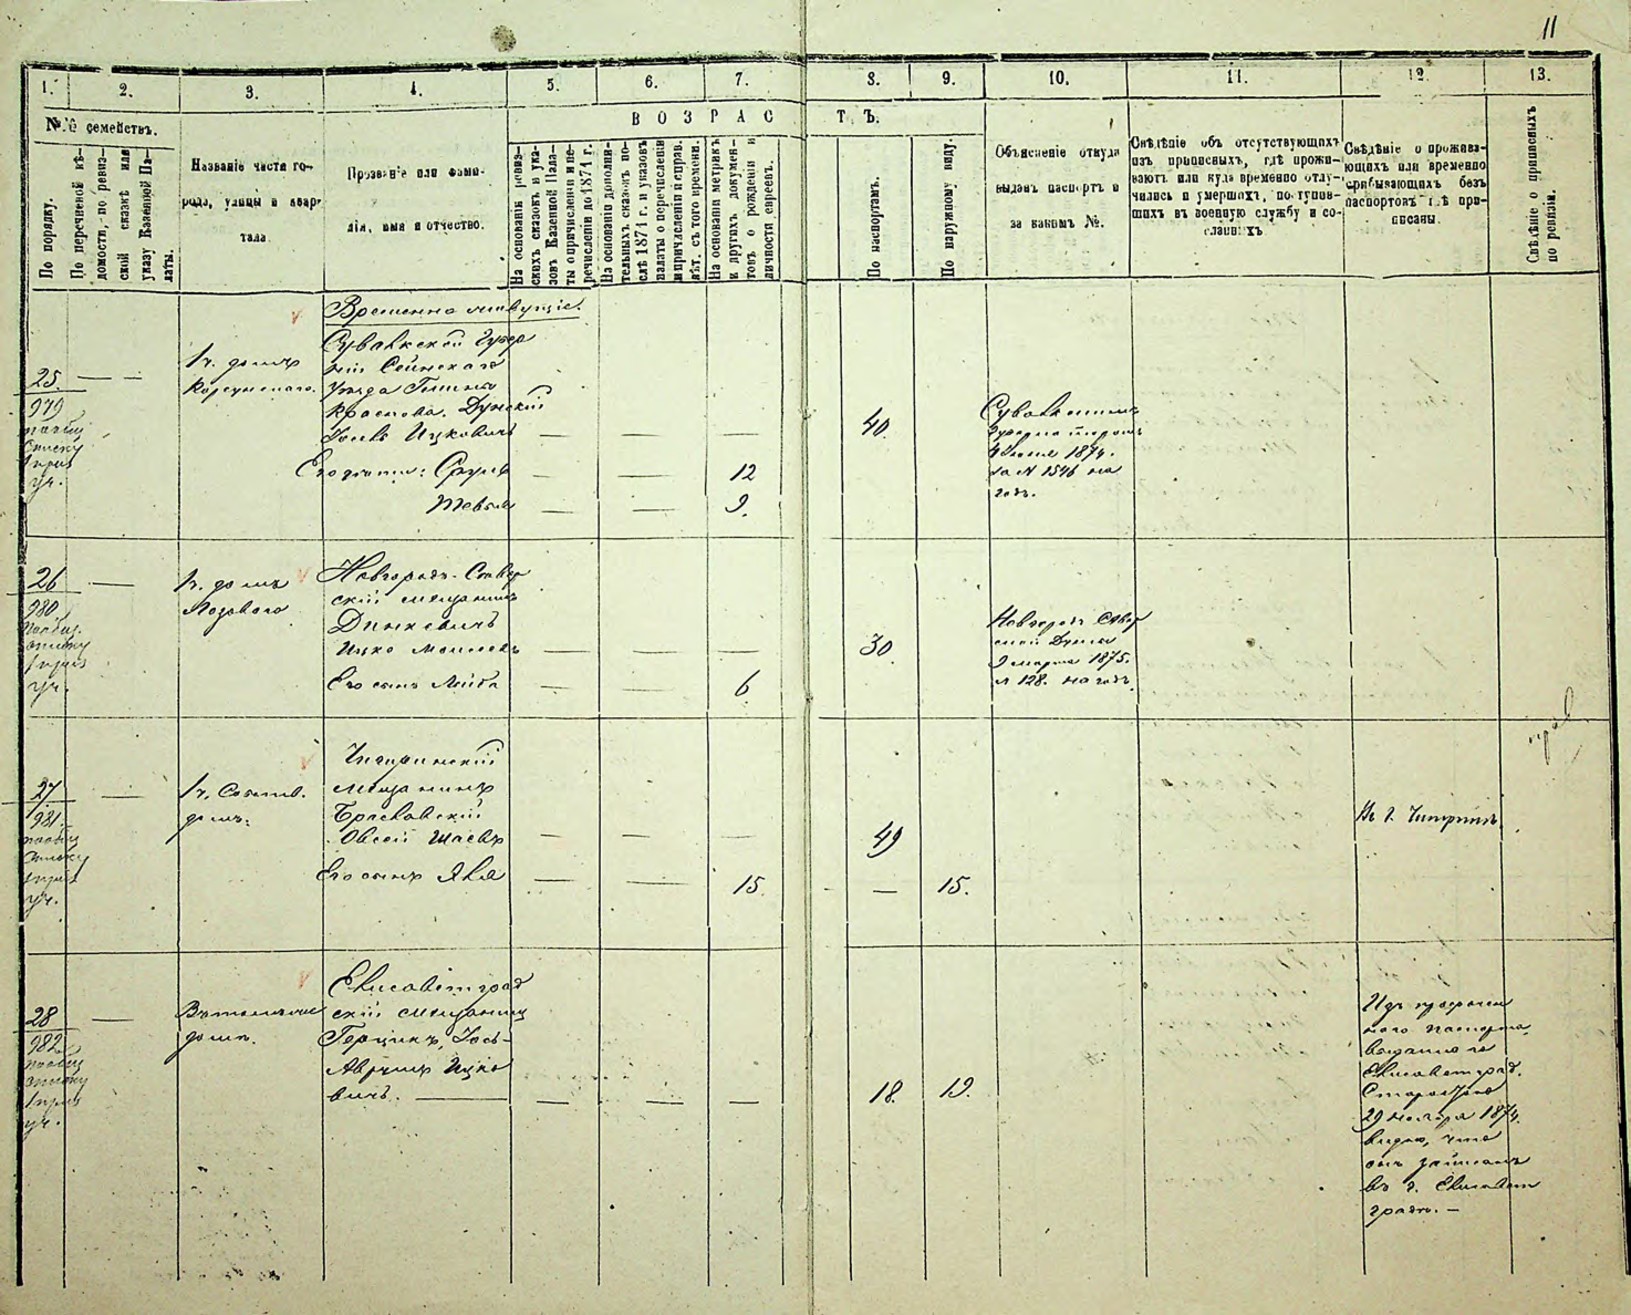 11
1.
2.
3.
4.
5.
6.
7.
8.
9.
10.
11.
12.
13.
№№ семействъ.
ВОЗРАСТЪ.
По порядку.
По перечневой вѣ-
домости, по ревиз-
ской сказкѣ или
указу Казенной Па-
латы.
Названіе части го-
рода, улицы и квар-
тала
Прозваніе или фами-
лія, имя и отчество.
На основаніи ревиз-
скихъ сказокъ и ука-
зовъ Казенной Пала-
ты о причисленіи и пе-
речисленіи до 1874 г.
На основаніи дополни-
тельныхъ сказокъ по-
слѣ 1874 г. и указовъ
палаты о перечисленіи
и причисленіи и справ.
лѣт. съ того времени.
На основаніи метрикъ
и другихъ докумен-
товъ о рожденіи и
личности евреевъ.
По паспортамъ.
По наружному виду.
Объясненіе откуда
выданъ паспортъ и
за какимъ №.
Свѣдѣніе объ отсутствующихъ
изъ приписныхъ, гдѣ прожи-
ваютъ или куда временно отлу-
чились и умершихъ, поступив-
шихъ въ военную службу и со-
сланныхъ
Свѣдѣніе о прожива-
ющихъ или временно
прибывающихъ безъ
паспортовъ гдѣ при-
писаны.
Свѣдѣніе о приписныхъ
по ревизіи.
Временно живущіе.
25.
979
списку
уч.
1 ч. домъ
Корсунскаго.
Сувалкской Губер
ніи Сейнскаго
Уѣзда Гмины
Краснова. Дунскій
Іосль Ицковичъ — — — 40.
Его дѣти: Сруль — — 12
Тевель — — 9.
4 Іюля 1874.
за № 1546 на
годъ.
26
980.
списку
уч.
—
1 ч. домъ
Лозоваго
Новгородъ-Сѣвер
скій мещанинъ
Динкевичъ
Ицко Моисеевъ — — — 30.
Его сынъ Лейба — — 6
Новгород Сѣвер
ской Думы
9 марта 1875.
№ 128. на годъ.
27
981.
списку
уч.
—
1 ч. Собств.
домъ.
Чигиринскій
мещанинъ
Браславскій
Овсей Шаевъ — — — 49
Его сынъ Явля — — 15. — 15.
Въ г. Чигиринѣ.
28
982.
списку
уч.
—
домъ.
Елисаветград
скій мещанинъ
Герцикъ, Іось-
Аврумъ Ицко
вичъ. — — — — 18. 19.
Изъ просрочен
наго паспорта,
выданнаго
Елисаветград.
Старостою
29 ноября 1874.
видно, что
онъ записанъ
въ г. Елисавет
градѣ. —